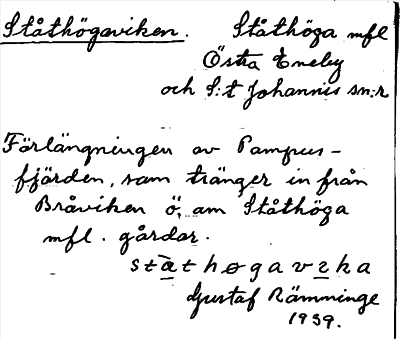 Ståthögaviken. Ståthöga mfl
Östra Eneby
och S:t Johannis sn:r
Förlängningen av Pampus-
fjärden, som tränger in från
Bråviken ö, om Ståthöga
mfl. gårdar.
Gustaf Rämminge
1939.